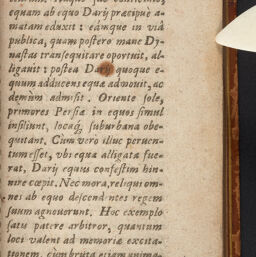 equam ab equo Darij præcipuè a-
matam eduxit : eámque in viâ
publica, quam postero mane Dy-
nastas transequitare oportuit, al-
ligauit : postea Darij quoque e-
quum adducens equæ admouit, ac
demùm admisit . Oriente sole,
primores Persiæ in equos simul
insiliunt, locaq́; suburbana obe-
quitant. Cùm verò illuc peruen-
tum esset, vbi equa alligata fue-
rat, Darij equus confestim hin-
nire cœpit. Nec mora, reliqui om-
nes ab equo descendentes regem
suum agnouerunt. Hoc exemplo
satis patere arbitror, quantum
loci valent ad memoriæ excita-
tionem, cùm bruta etiam anima-